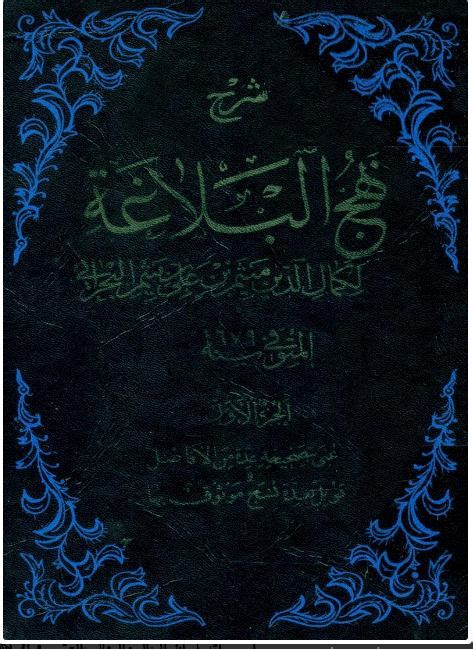 شرح
نهج البلاغة
لكمال الدين ميثم بن علي بن ميثم البحراني
المتوفى سنة ٦٧٩
الجزء الأول
عنى بتصحيحه عدة من الأفاضل
و
قوبل بعدة نسخ موثوق بها